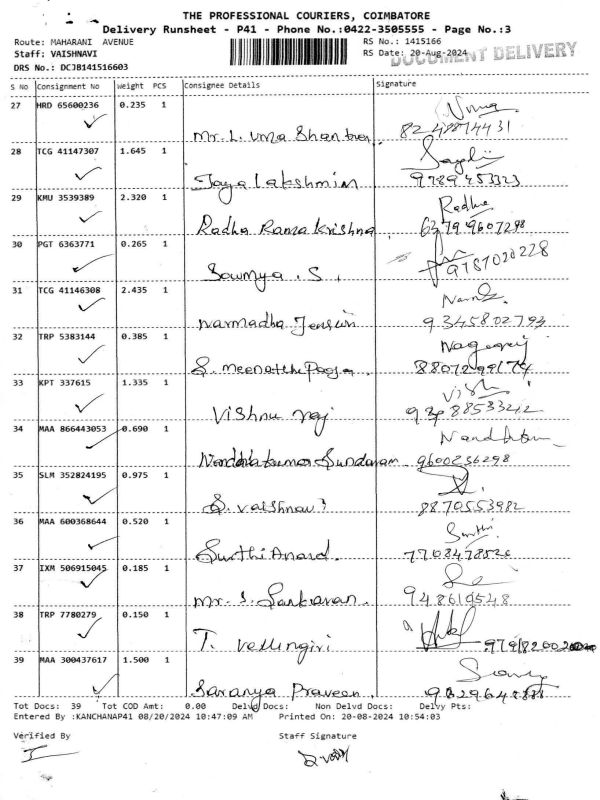 THE PROFESSIONAL COURIERS, COIMBATORE
Delivery Runsheet - P41 - Phone No.:0422-3505555 - Page No.:3
Route: MAHARANI AVENUE RS No.: 1415166
Staff: VAISHNAVI RS Date: 20-Aug-2024 DOCUMENT DELIVERY
DRS No.: DCJB141516603
S No Consignment No Weight PCS Consignee Details Signature
27 HRD 65600236 0.235 1
Mr. L. Uma Shan
28 TCG 41147307 1.645 1
Jaya lakshmin 9789453323
29 KMU 3539389 2.320 1 Radha
Radha Rama Krishna 6379607298
30 PGT 6363771 0.265 1
Sowmya . S. 9787020228
31 TCG 41146308 2.435 1
Narmadha 9345802793
32 TRP 5383144 0.385 1 Nagaraj
S. Meenatchi Pooja.
33 KPT 337615 1.335 1
Vishnu raj
34 MAA 866443053 0.690 1
Nandakumar Sundaram 9600236298
35 SLM 352824195 0.975 1
S. Vaishnavi 8870553982
36 MAA 600368644 0.520 1
Surthi Anand.
37 IXM 506915045 0.185 1
Mr. S. Sankaran.
38 TRP 7780279 0.150 1
T. Vellingiri
39 MAA 300437617 1.500 1
Saranya Praveen.
Tot Docs: 39 Tot COD Amt: 0.00 Delvd Docs: Non Delvd Docs: Delvy Pts:
Entered By :KANCHANAP41 08/20/2024 10:47:09 AM Printed On: 20-08-2024 10:54:03
Verified By Staff Signature